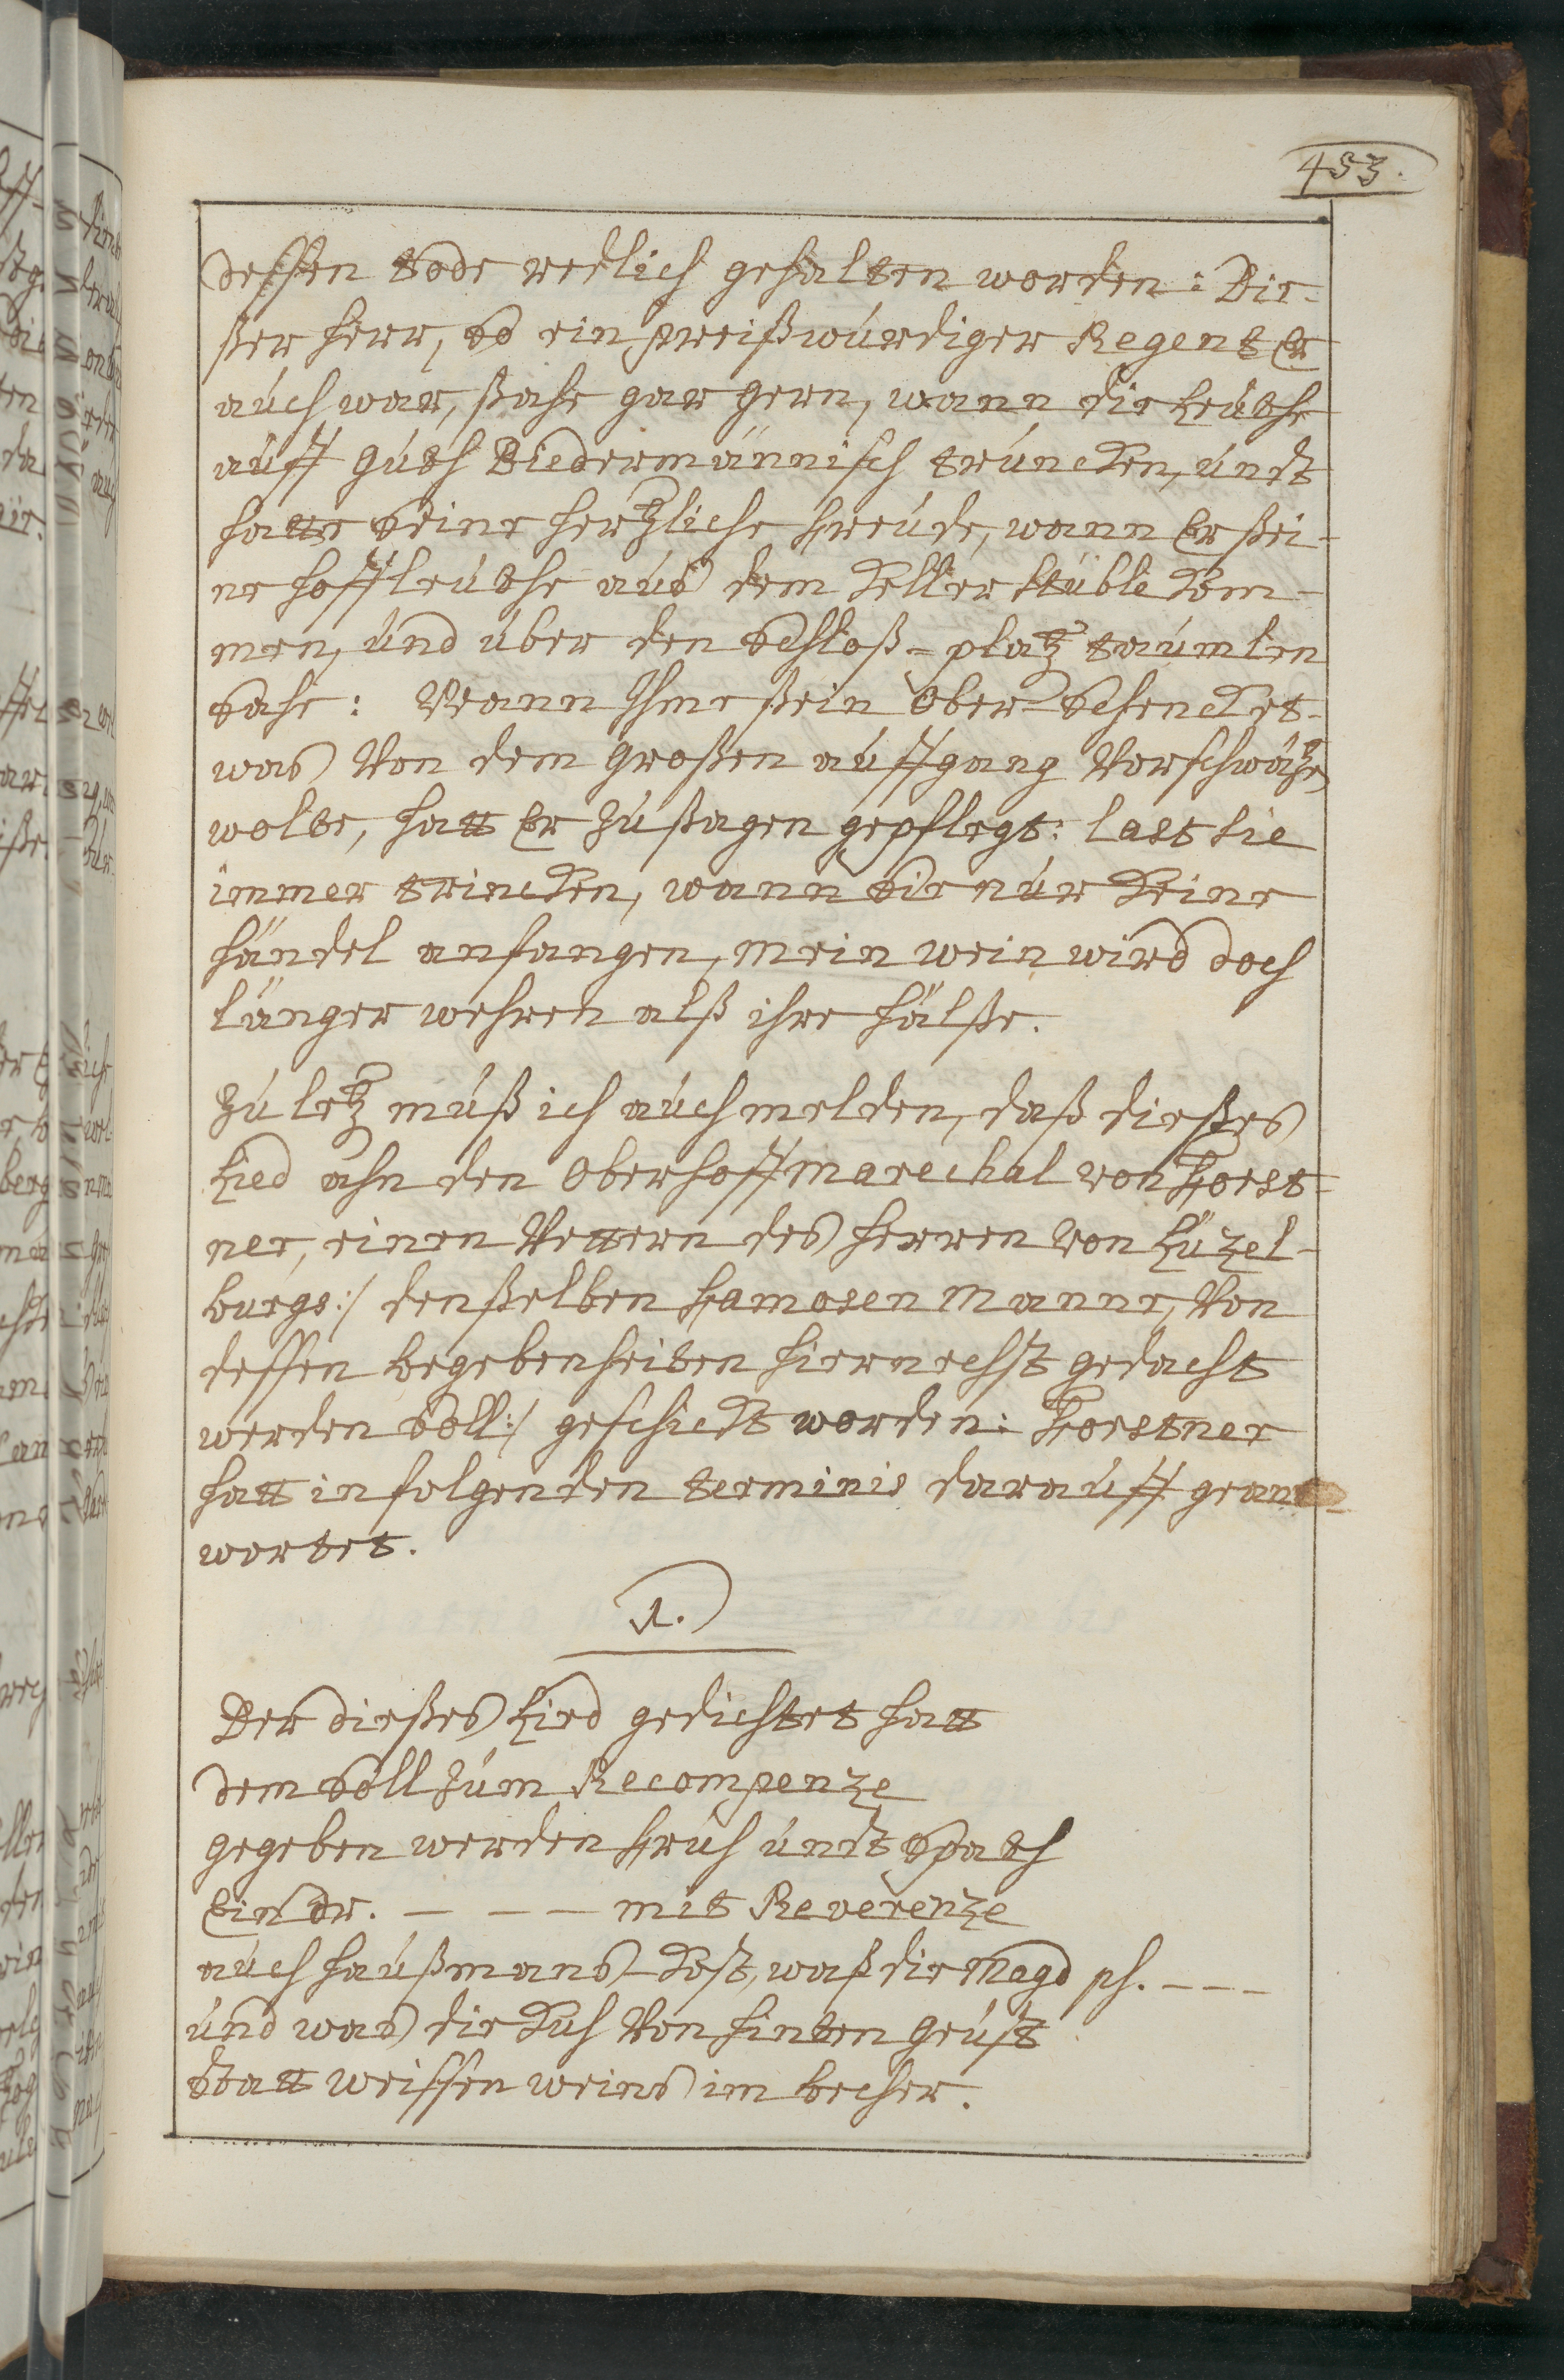 453.
deßen tode redlich gehalten worden: Die-
ßer herr, so ein preißwürdiger Regent Er
auch war, ßahe gar gern, wann die Leüthe
auff guth Biedermännisch truncken, undt
hatte seine hertzliche Freüde, wann Er ßei-
ne hoffleüthe aus dem Kellerstüble kom-
men, und über den Schloß-platz taumlen
sahe: Wann Ihme ßein Ober-Schenck et-
was von dem großen auffgang vorschwätzen
wolte, hatt Er zu ßagen gepflegt: last sie
immer trincken, wann sie nur keine
händel anfangen, mein wein wird doch
länger wehren alß ihre hälße.
Zu letz muß ich auch melden, daß dießes
Lied ahn den Oberhoffmarechal von Forst-
ner, einen Vettern des herren von Lüzel-
burgs :/ denßelben Famosen Manne, von
dessen begebenheiten hiernechst gedacht
werden soll :/ geschickt worden: Forstner
hatt in folgenden terminis darauff geant
wortet.
1.
Der dießes Lied gedichtet hatt
dem soll zum Recompenze
gegeben werden Früh undt spath
Ein dr. - - - mit Reverenze
auch haußmans-kost, waß die Magd ph. - - -
und was die Kuh von hinten geust
statt weissen weins im becher.